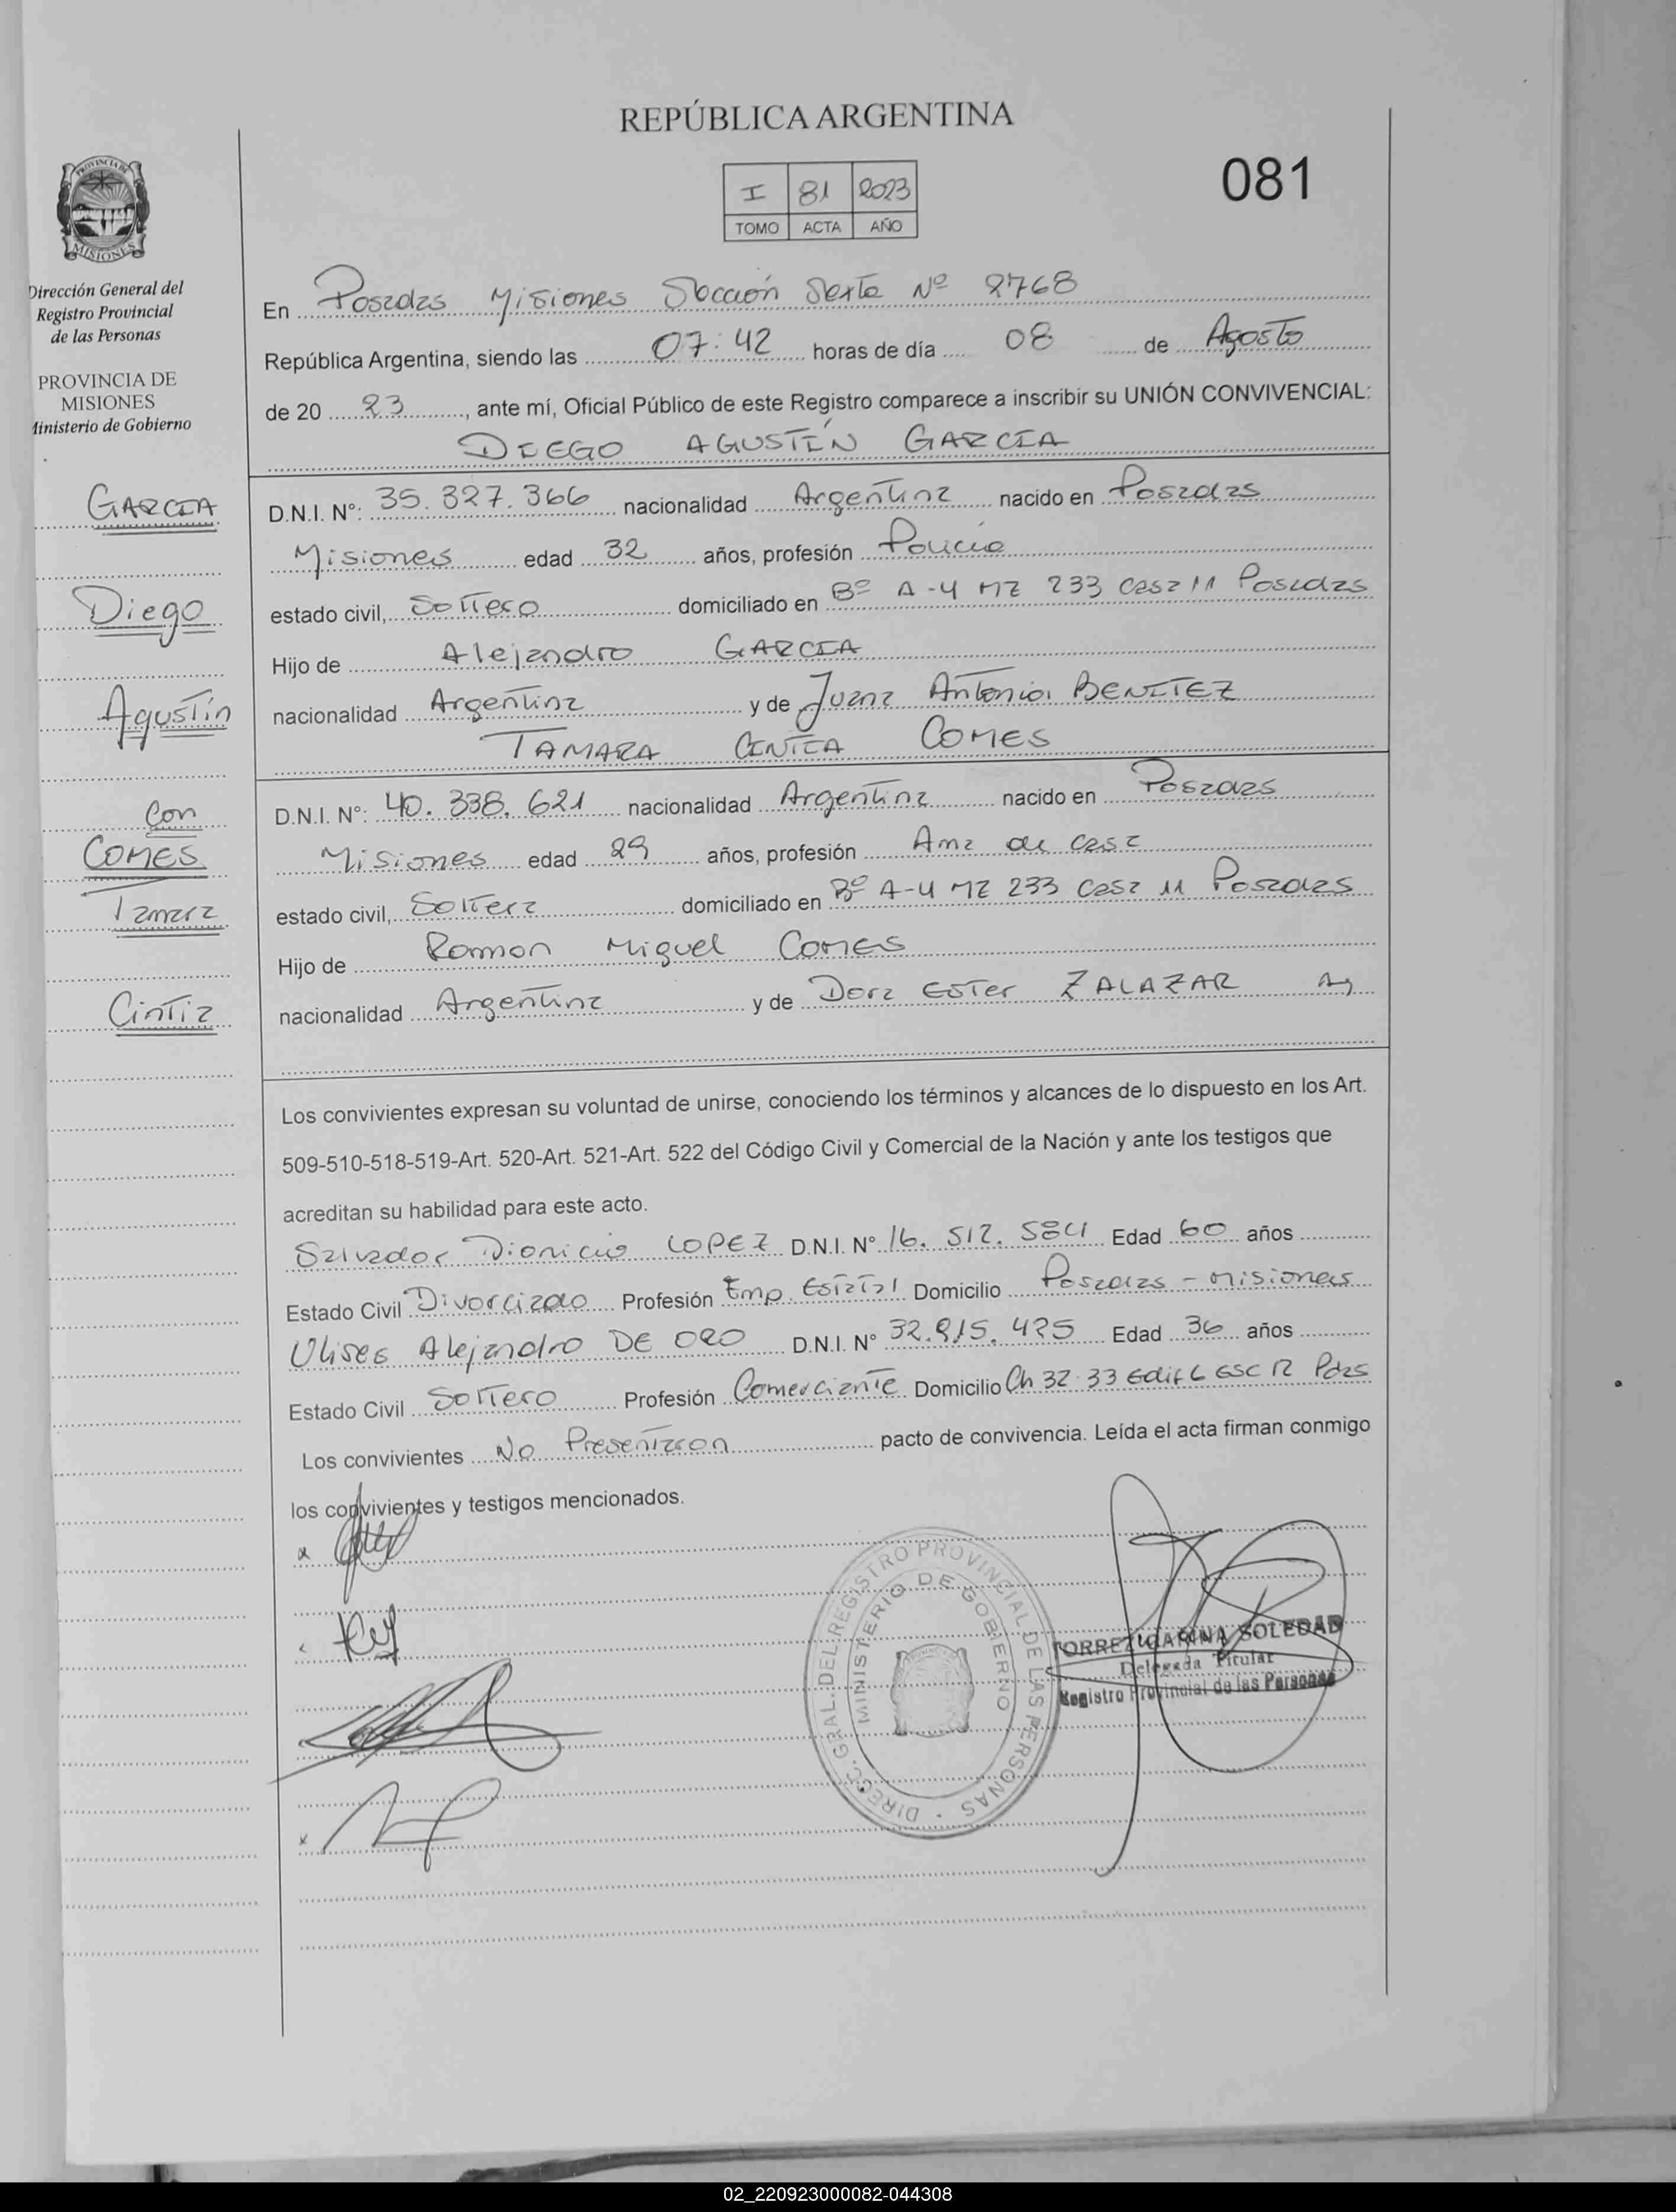 REPÚBLICA ARGENTINA
081
I 81 2023
TOMO ACTA AÑO
PROVINCIA DE
MISIONES
Dirección General del
Registro Provincial
de las Personas
PROVINCIA DE
MISIONES
Ministerio de Gobierno
GARCIA
Diego
Agustín
Con
COMES
Tamara
Cintia
En Posadas Misiones Sección Sexta Nº 2768
República Argentina, siendo las 07:42 horas de día 08 de Agosto
de 20 23, ante mí, Oficial Público de este Registro comparece a inscribir su UNIÓN CONVIVENCIAL:
DIEGO AGUSTÍN GARCIA
D.N.I. N°: 35.327.366 nacionalidad Argentina nacido en Posadas
Misiones edad 32 años, profesión Policia
estado civil, Soltero domiciliado en Bº A-4 MZ 233 Casa 11 Posadas
Hijo de Alejandro GARCIA
nacionalidad Argentina y de Juana Antonia BENITEZ
TAMARA CINTIA COMES
D.N.I. N°: 40.338.621 nacionalidad Argentina nacido en Posadas
Misiones edad 29 años, profesión Ama de casa
estado civil, Soltera domiciliado en Bº A-4 MZ 233 Casa 11 Posadas
Hijo de Ramon Miguel COMES
nacionalidad Argentina y de Dora Ester ZALAZAR Ag
Los convivientes expresan su voluntad de unirse, conociendo los términos y alcances de lo dispuesto en los Art.
509-510-518-519-Art. 520-Art. 521-Art. 522 del Código Civil y Comercial de la Nación y ante los testigos que
acreditan su habilidad para este acto.
Salvador Dionicio LOPEZ D.N.I. N° 16.512.584 Edad 60 años
Estado Civil Divorciado Profesión Emp. Estatal Domicilio Posadas - Misiones
Ulises Alejandro DE ORO D.N.I. N° 32.915.425 Edad 36 años
Estado Civil Soltero Profesión Comerciante Domicilio Ch 32 33 Edif 6 ESC 12 Pdas
Los convivientes No Presentaron pacto de convivencia. Leída el acta firman conmigo
los convivientes y testigos mencionados.
DIRECC. GRAL. DEL REGISTRO PROVINCIAL DE LAS PERSONAS
MINISTERIO DE GOBIERNO
SOLEDAD
Delegada Titular
Registro Provincial de las Personas
02_220923000082-044308